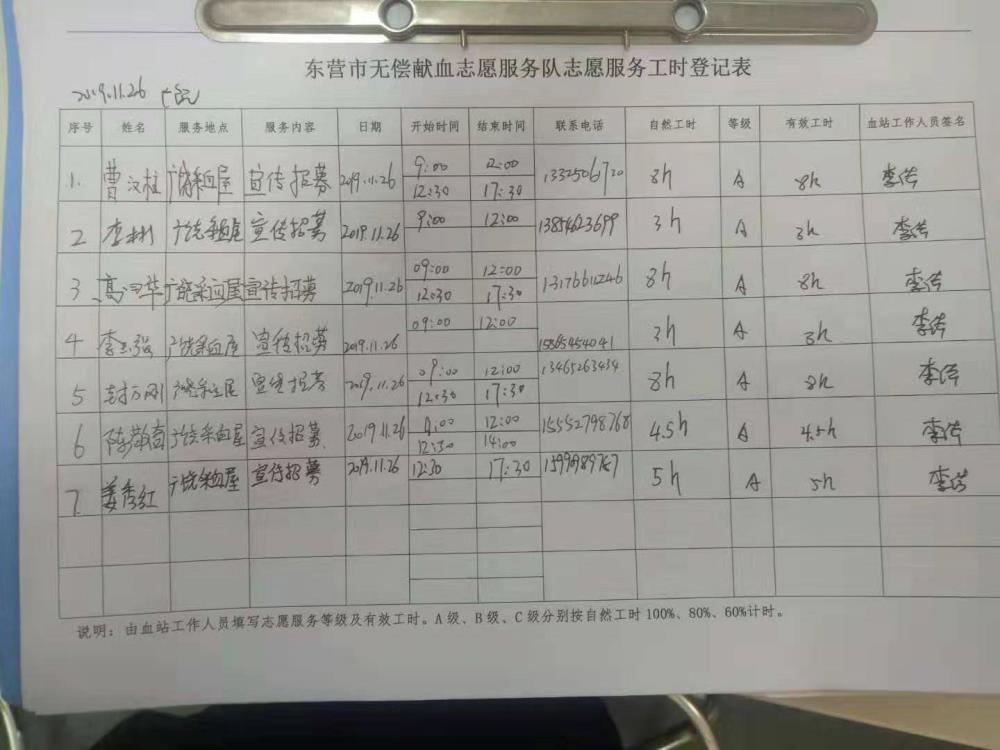 东营市无偿献血志愿服务队志愿服务工时登记表
2019.11.26
序号 姓名 服务地点 服务内容 日期 开始时间 结束时间 联系电话 自然工时 等级 有效工时 血站工作人员签名
1. 曹汉柱 广饶采血屋 宣传招募 2019.11.26 9:00 12:00 8h A 8h 李倩
12:30 17:30
2 李彬 广饶采血屋 宣传招募 2019.11.26 9:00 12:00 13854623699 3h A 3h 李倩
3 高 华 广饶采血屋 宣传招募 2019.11.26 09:00 12:00 13176611246 8h A 8h 李倩
12:30 17:30
4 李 强 广饶采血屋 宣传招募 2019.11.26 09:00 12:00 3h A 3h 李倩
5 广饶采血屋 宣传招募 2019.11.26 09:00 12:00 13465263434 8h A 8h 李倩
12:30 17:30
6 陈 广饶采血屋 宣传招募 2019.11.26 9:00 12:00 15552798768 4.5h A 4.5h 李倩
12:30 14:00
7. 姜秀红 广饶采血屋 宣传招募 2019.11.26 12:30 17:30 5h A 5h 李倩
说明：由血站工作人员填写志愿服务等级及有效工时。A级、B级、C级分别按自然工时100%、80%、60%计时。